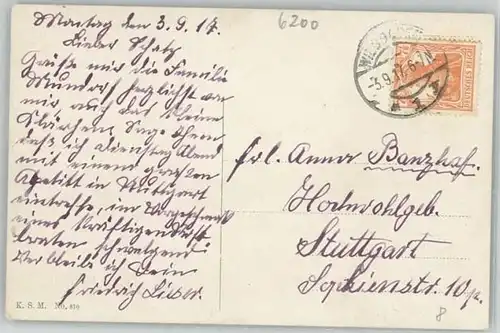 Montag den 3.9.17.
Lieber Schatz
Grüße mir die Familie
Mundorf herzlichst von
mir, auch das kleine
Klärchen. Sage Ihnen
daß ich Dienstag Abend
mit einem großen
Apetitt in Stuttgart
eintreffe, im Vorgeschmack
eines kräftigen
braten schwelgend
verbleib ich Dein
Friedrich
6200
WIESBADEN
-3.9.17.6-7N
DEUTSCHES REICH
Frl. Anna Banzhaf.
Hochwohlgeb.
Stuttgart
Sophienstr. 10
K. S. M. No. 810
8